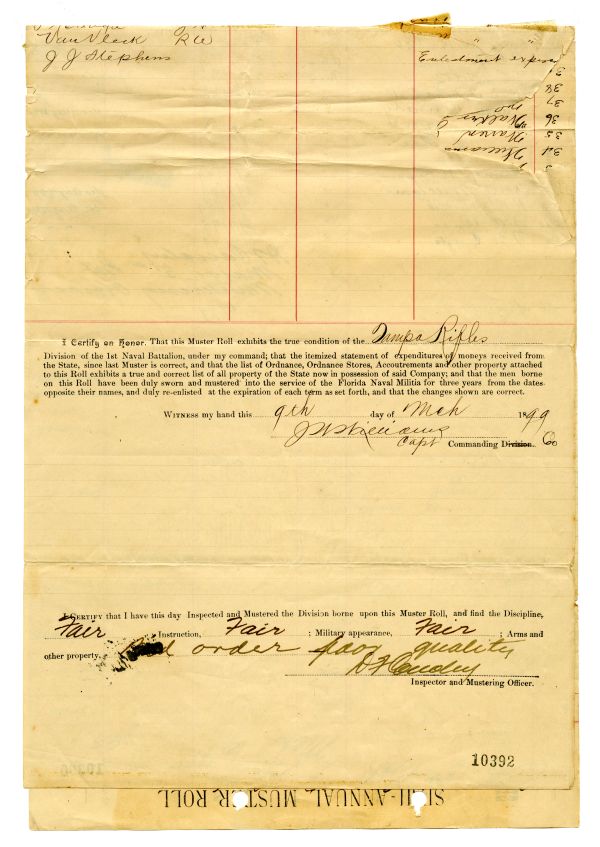 Van Vleck R W
J J Stephens Enlestment expires
38
37
36 Walker
35 Warren
34 Williams
I Certify on Honor. That this Muster Roll exhibits the true condition of the Tampa Rifles
Division of the 1st Naval Battalion, under my command; that the itemized statement of expenditures of moneys received from
the State, since last Muster is correct, and that the list of Ordnance, Ordnance Stores, Accoutrements and other property attached
to this Roll exhibits a true and correct list of all property of the State now in possession of said Company; and that the men borne
on this Roll have been duly sworn and mustered into the service of the Florida Naval Militia for three years from the dates
opposite their names, and duly re-enlisted at the expiration of each term as set forth, and that the changes shown are correct.
WITNESS my hand this 9th day of Mch 1899
Williams
Capt Commanding Division. Co
I CERTIFY that I have this day Inspected and Mustered the Division borne upon this Muster Roll, and find the Discipline,
Fair Instruction, Fair ; Military appearance, Fair ; Arms and
other property, order poor quality
Inspector and Mustering Officer.
10392
SEMI-ANNUAL MUSTER ROLL